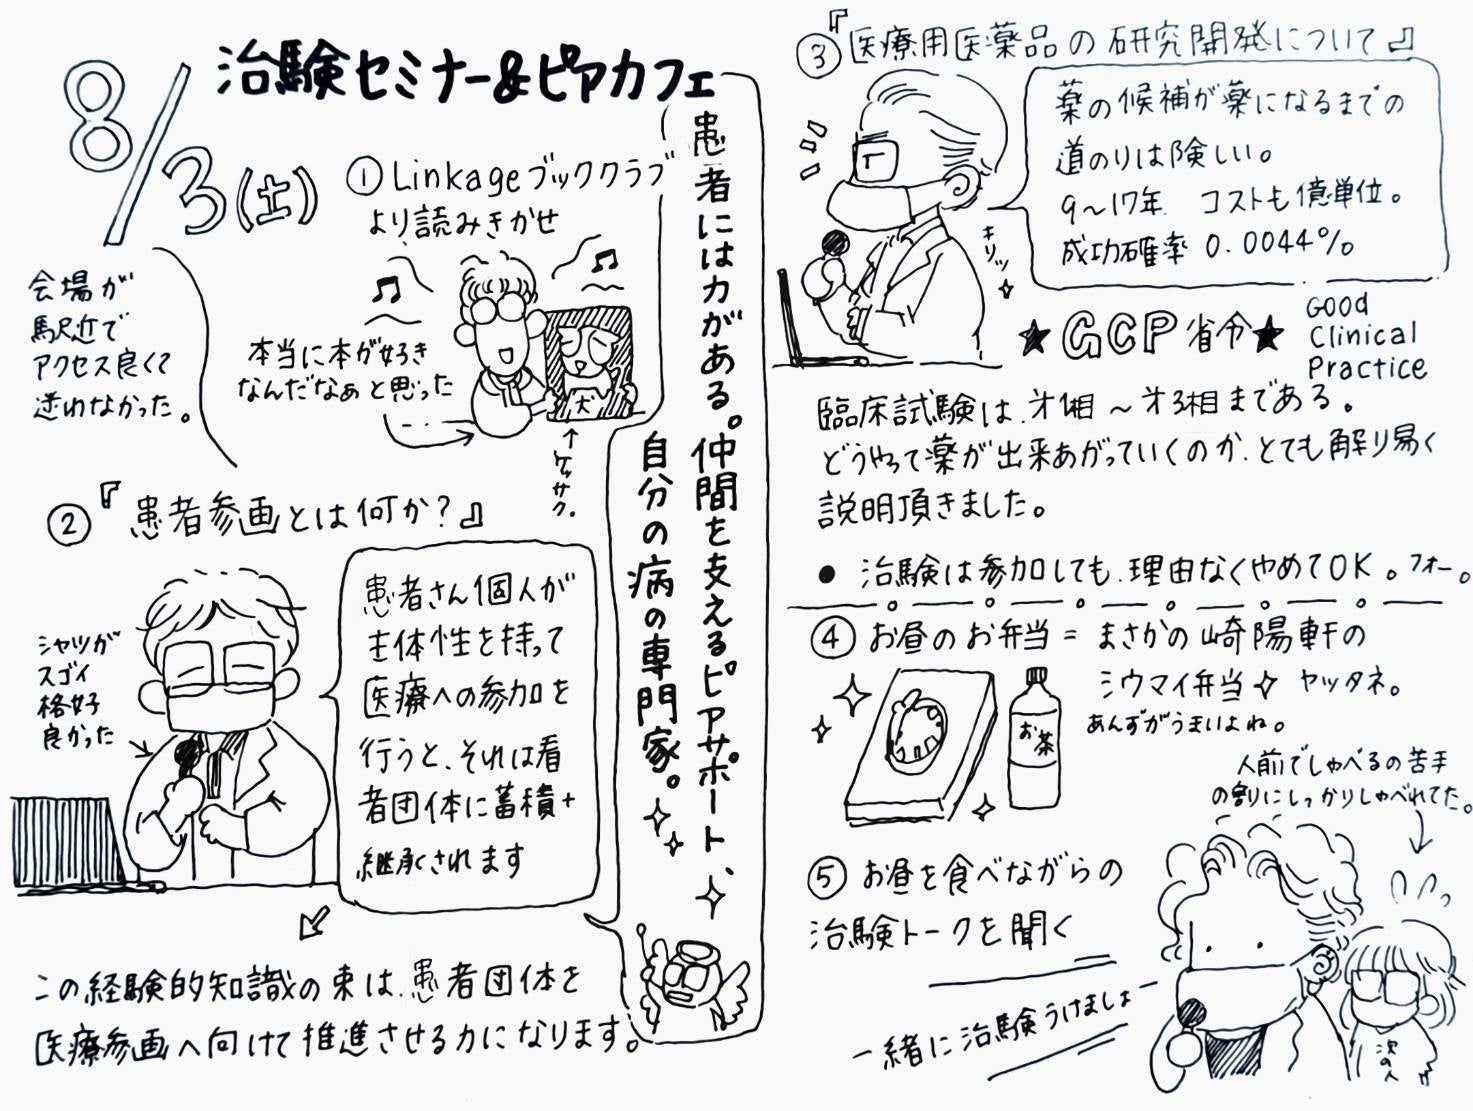 8/3(土)
治験セミナー&ピアカフェ
会場が
駅近で
アクセス良くて
迷わなかった。
①Linkageブッククラブ
より読みきかせ
本当に本が好き
なんだなぁと思った
犬
ケッサク。
患者には力がある。仲間を支えるピアサポート、
自分の病の専門家。
②『患者参画とは何か?』
シャツが
スゴイ
格好
良かった
患者さん個人が
主体性を持って
医療への参加を
行うと、それは看
者団体に蓄積+
継承されます
この経験的知識の束は、患者団体を
医療参画へ向けて推進させる力になります。
③『医療用医薬品の研究開発について』
薬の候補が薬になるまでの
道のりは険しい。
9〜17年 コストも億単位。
成功確率 0.0044%
キリッ
★GCP省令★
GOOD
Clinical
Practice
臨床試験は、才1相〜才3相まである。
どうやって薬が出来あがっていくのか、とても解り易く
説明頂きました。
● 治験は参加しても、理由なくやめてOK。フォー。
④お昼のお弁当=まさかの崎陽軒の
シウマイ弁当 ヤッタネ。
あんずがうまいよね。
お茶
人前でしゃべるの苦手
の割にしっかりしゃべれてた。
⑤お昼を食べながらの
治験トークを聞く
一緒に治験うけましょー
次の人